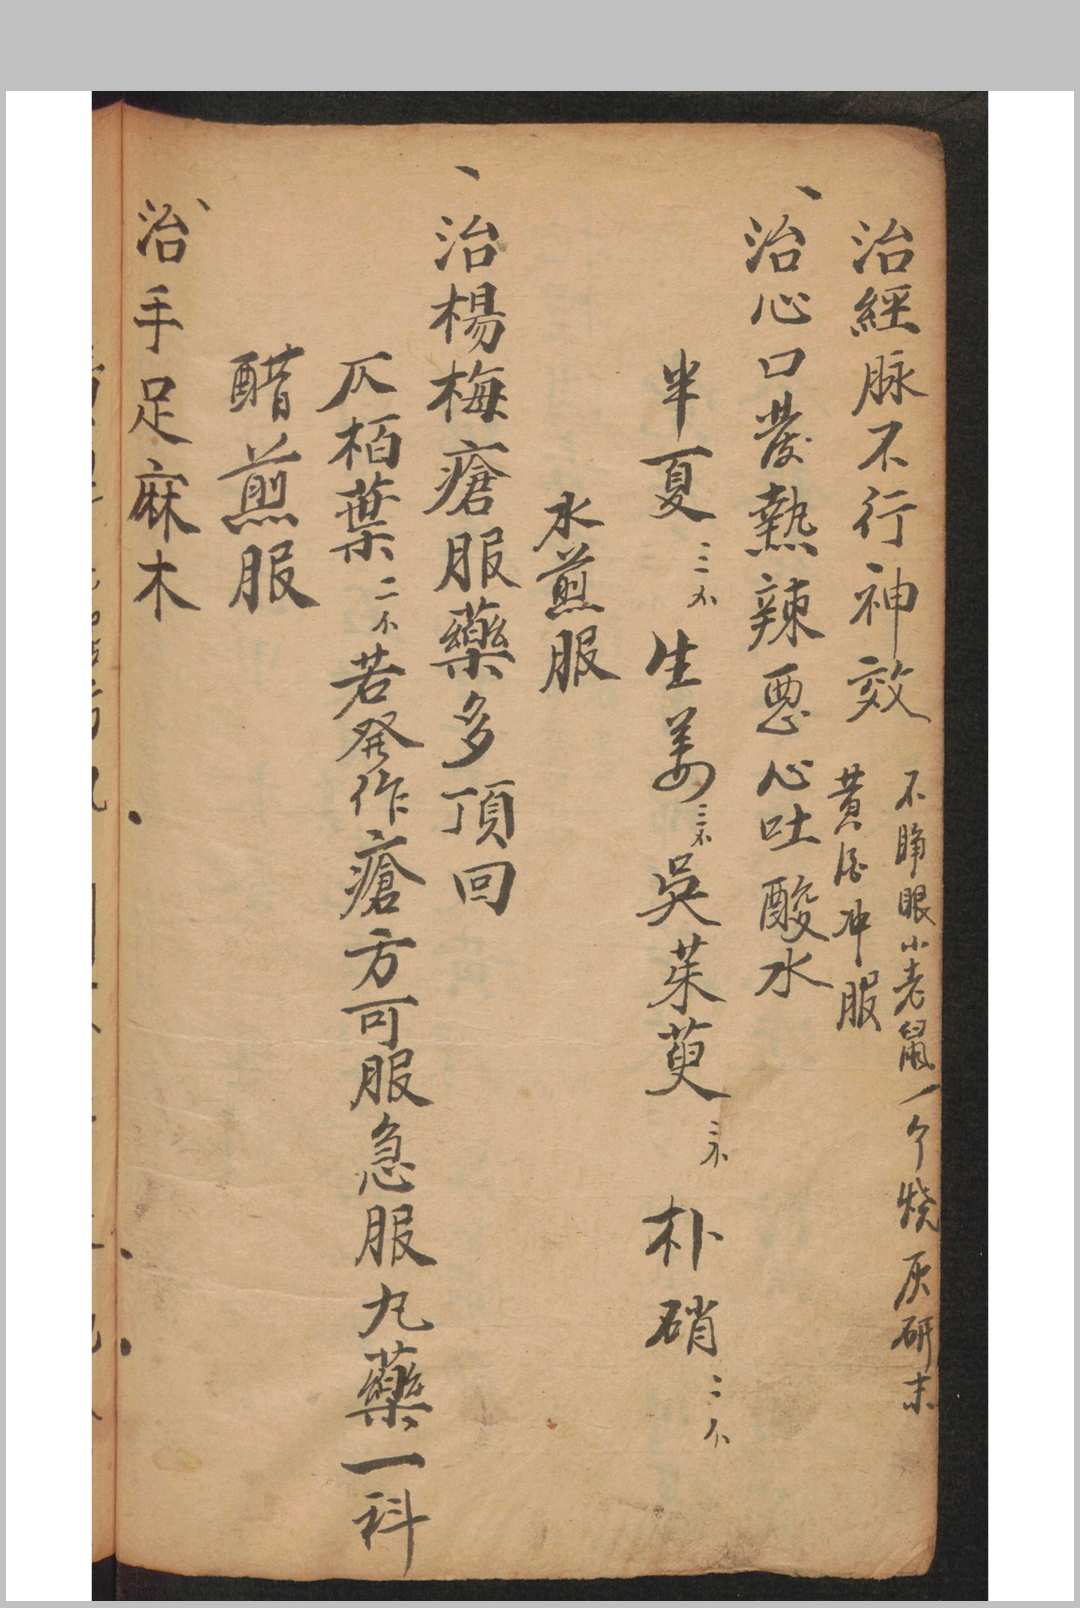 治經脉不行神效
不睁眼小老鼠一个燒灰研末
黄酒冲服
治心口發熱辣惡心吐酸水
半夏三不生姜三不吳茱萸三不朴硝二不
水煎服
治楊梅瘡服藥多頂回
仄栢葉二不若発作瘡方可服急服丸藥一科
醋煎服
治手足麻木